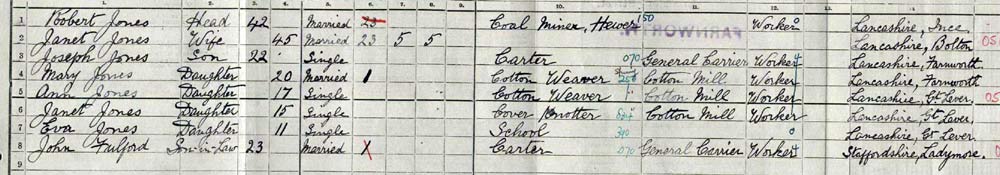 1 Robert Jones Head 42 Married 23 Coal Miner, Hewer 150 Worker 0 Lancashire, Ince
2 Janet Jones Wife 45 Married 23 5 5 Lancashire, Bolton 05
3 Joseph Jones Son 22 Single Carter 070 General Carrier Worker Lancashire, Farnworth
4 Mary Jones Daughter 20 Married 1 Cotton Weaver Cotton Mill Worker Lancashire, Farnworth
5 Ann Jones Daughter 17 Single Cotton Weaver " Cotton Mill Worker Lancashire, Lt Lever 05
6 Janet Jones Daughter 15 Single Cotton Mill Worker Lancashire, Lt Lever
7 Eva Jones Daughter 11 Single School 390 0 Lancashire, Lt Lever
8 John Fulford Son-in-Law 23 Married X Carter 070 General Carrier Worker Staffordshire, Ladymore.
9
FARNWORTH